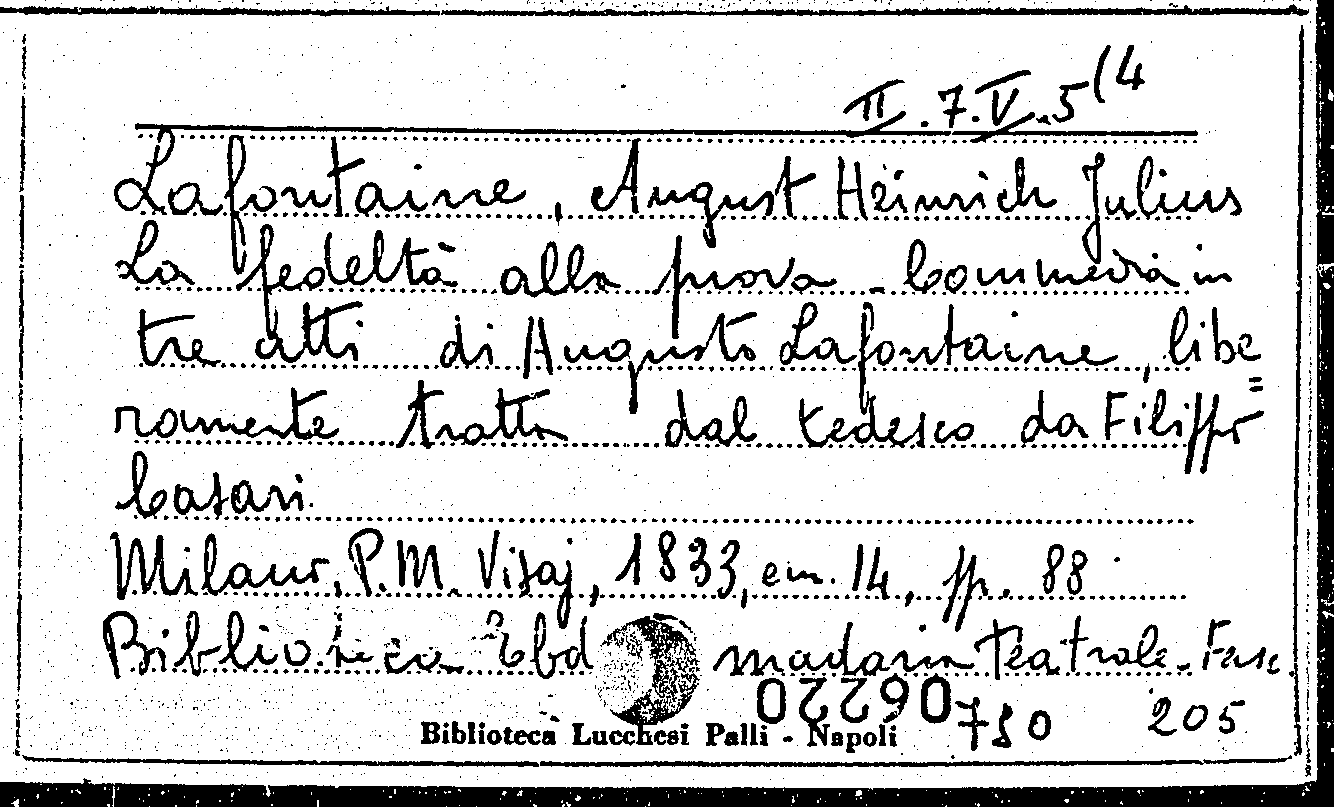 II.7.V.5(4
Lafontaine, August Heinrich Julius
La fedeltà alla prova - Commedia in
tre atti di Augusto Lafontaine, libe=
ramente tratta dal tedesco da Filippo
Casari.
Milano, P. M. Visaj, 1833, cm. 14, pp. 88
Biblioteca Ebdomadaria Teatrale - Fasc.
205
02260
Biblioteca Lucchesi Palli - Napoli